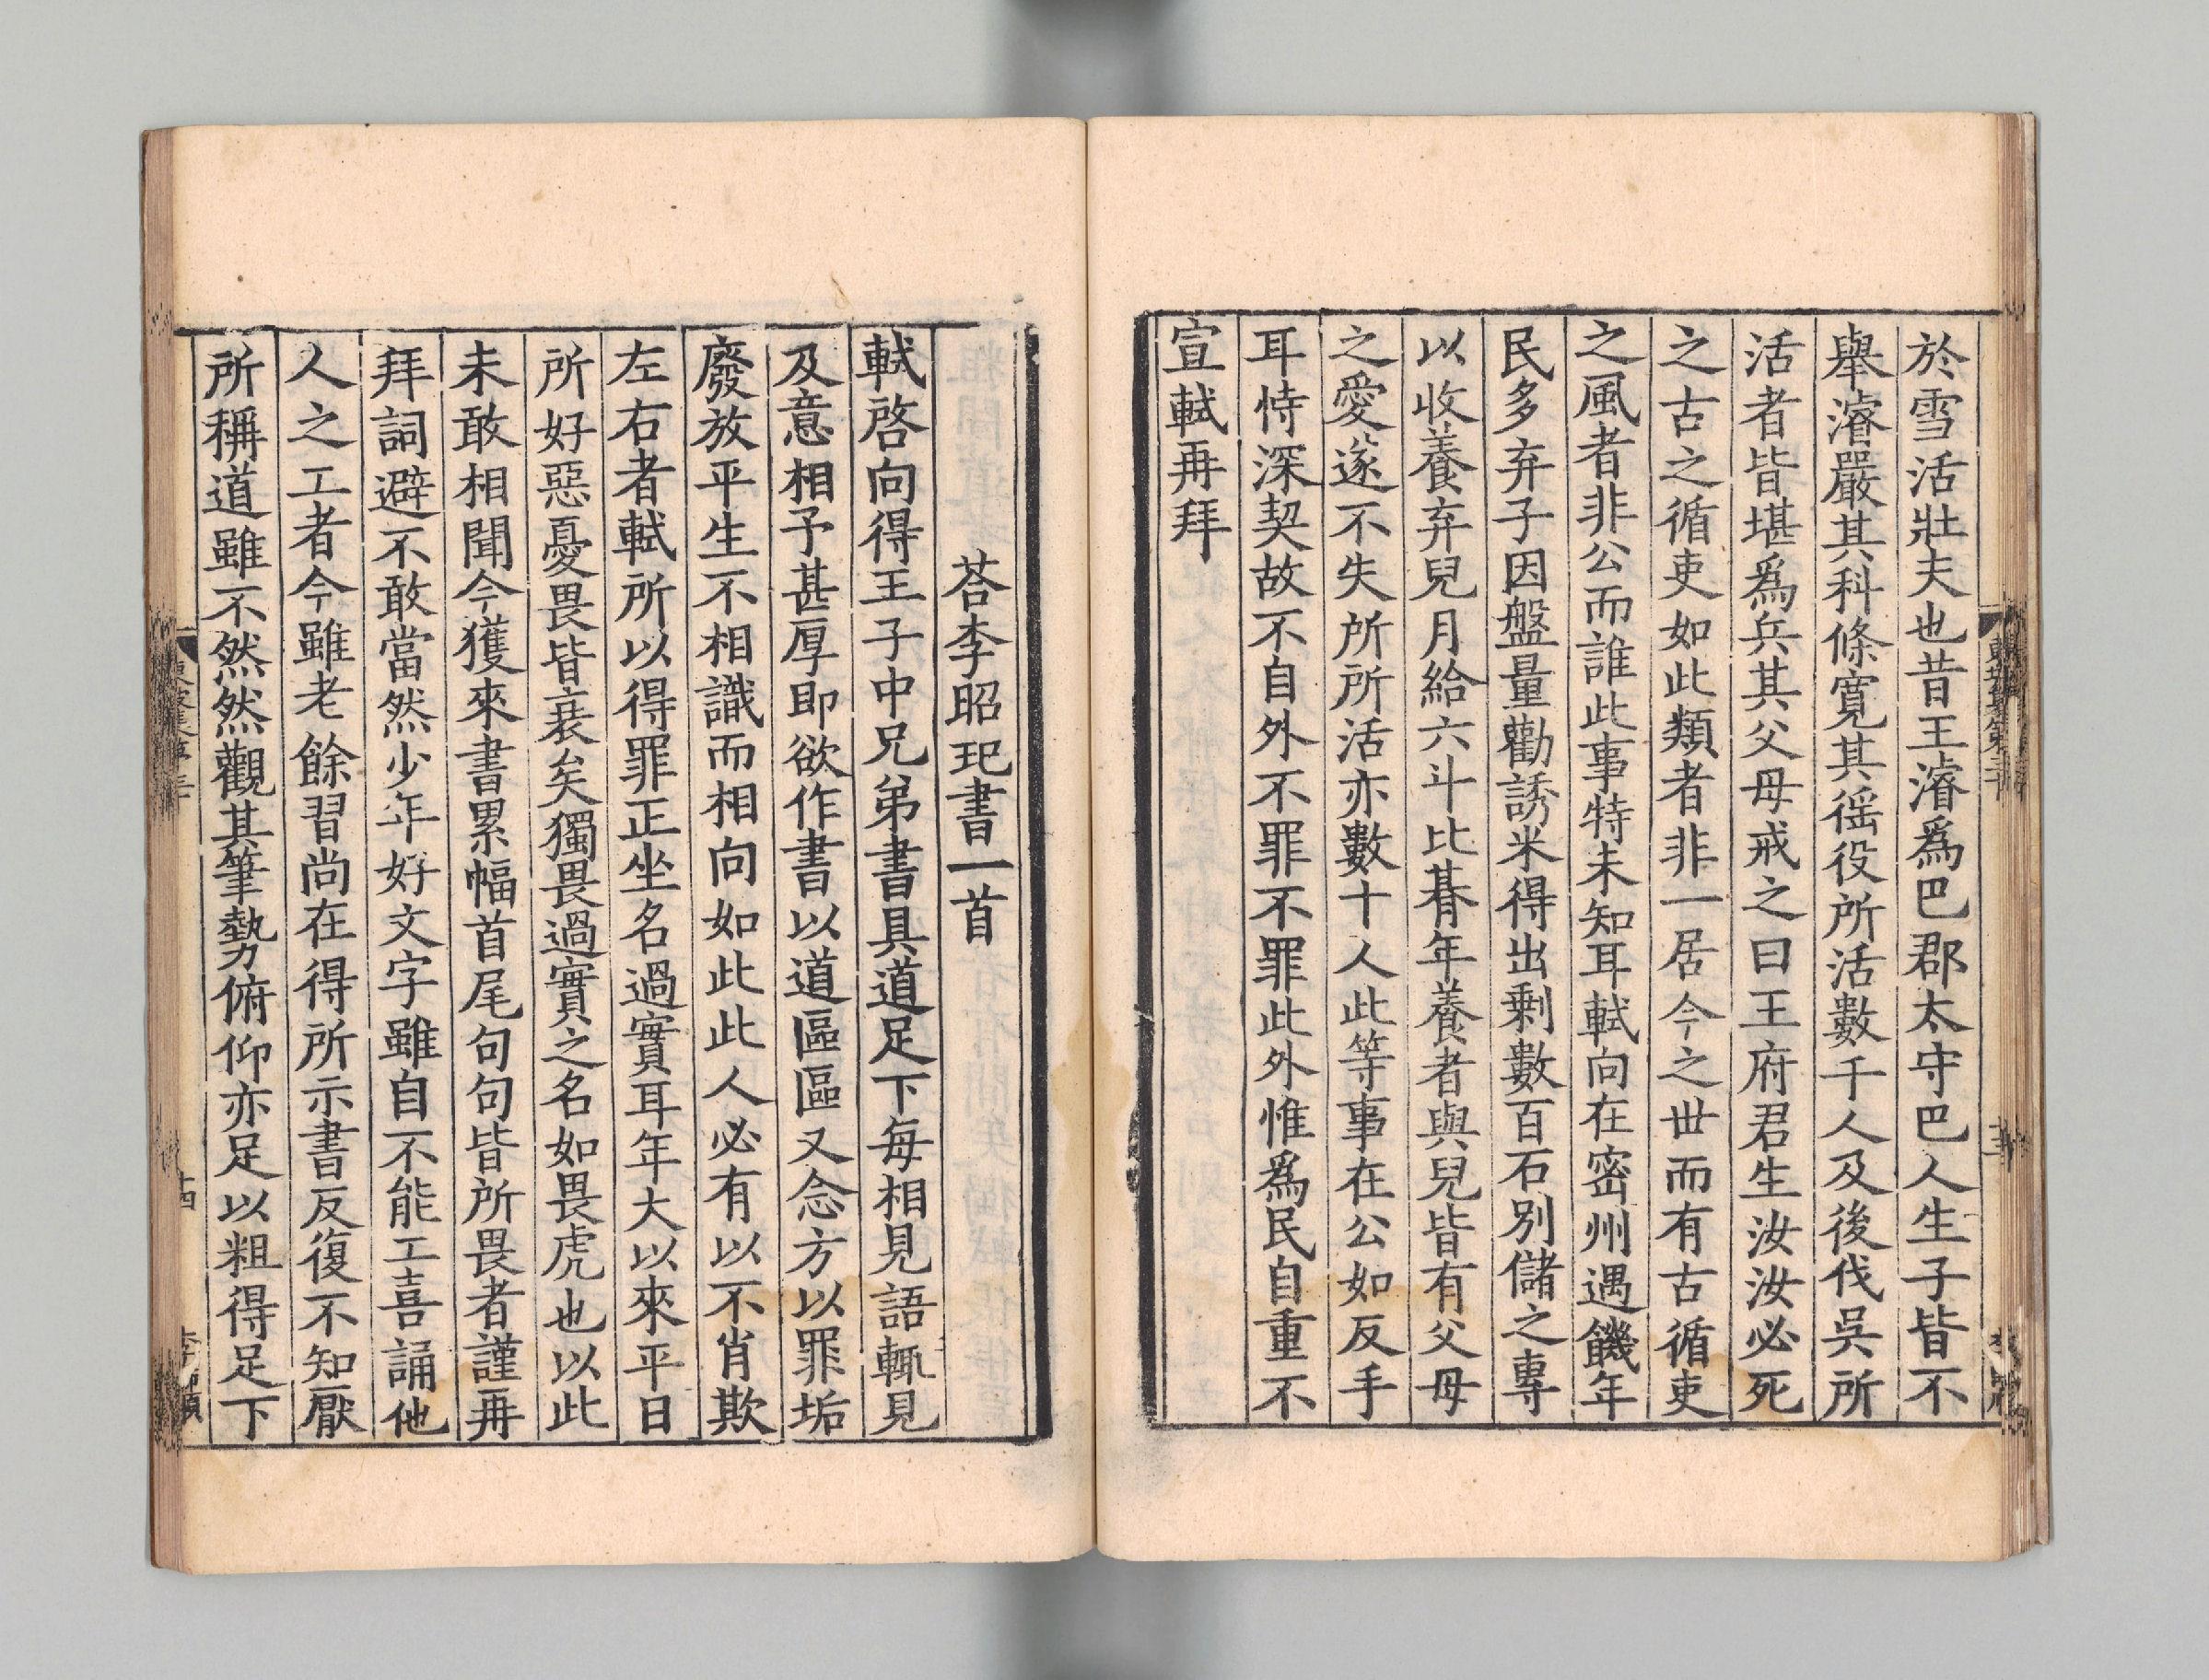 於雪活壯夫也昔王濬爲巴郡太守巴人生子皆不
舉濬嚴其科條寬其徭役所活數千人及後伐吳所
活者皆堪爲兵其父母戒之曰王府君生汝汝必死
之古之循吏如此類者非一居今之世而有古循吏
之風者非公而誰此事特未知耳軾向在密州遇饑年
民多弃子因盤量勸誘米得出剩數百石別儲之專
以收養弃兒月給六斗比朞年養者與兒皆有父母
之愛遂不失所所活亦數十人此等事在公如反手
耳恃深契故不自外不罪不罪此外惟爲民自重不
宣軾再拜
荅李昭玘書一首
軾啓向得王子中兄弟書具道足下每相見語輒見
及意相予甚厚即欲作書以道區區又念方以罪垢
廢放平生不相識而相向如此此人必有以不肖欺
左右者軾所以得罪正坐名過實耳年大以來平日
所好惡憂畏皆衰矣獨畏過實之名如畏虎也以此
未敢相聞今獲來書累幅首尾句句皆所畏者謹再
拜詞避不敢當然少年好文字雖自不能工喜誦他
人之工者今雖老餘習尚在得所示書反復不知厭
所稱道雖不然然觀其筆勢俯仰亦足以粗得足下